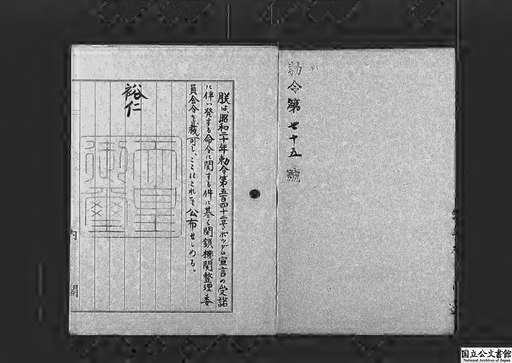 勅令第七十五號
朕は、昭和二十年勅令第五百四十二号ポツダム宣言の受諾
に伴い発する命令に関する件に基く閉鎖機関整理委
員会令を裁可し、ここにこれを公布せしめる。
裕仁
天皇御璽
内閣
国立公文書館
National Archives of Japan